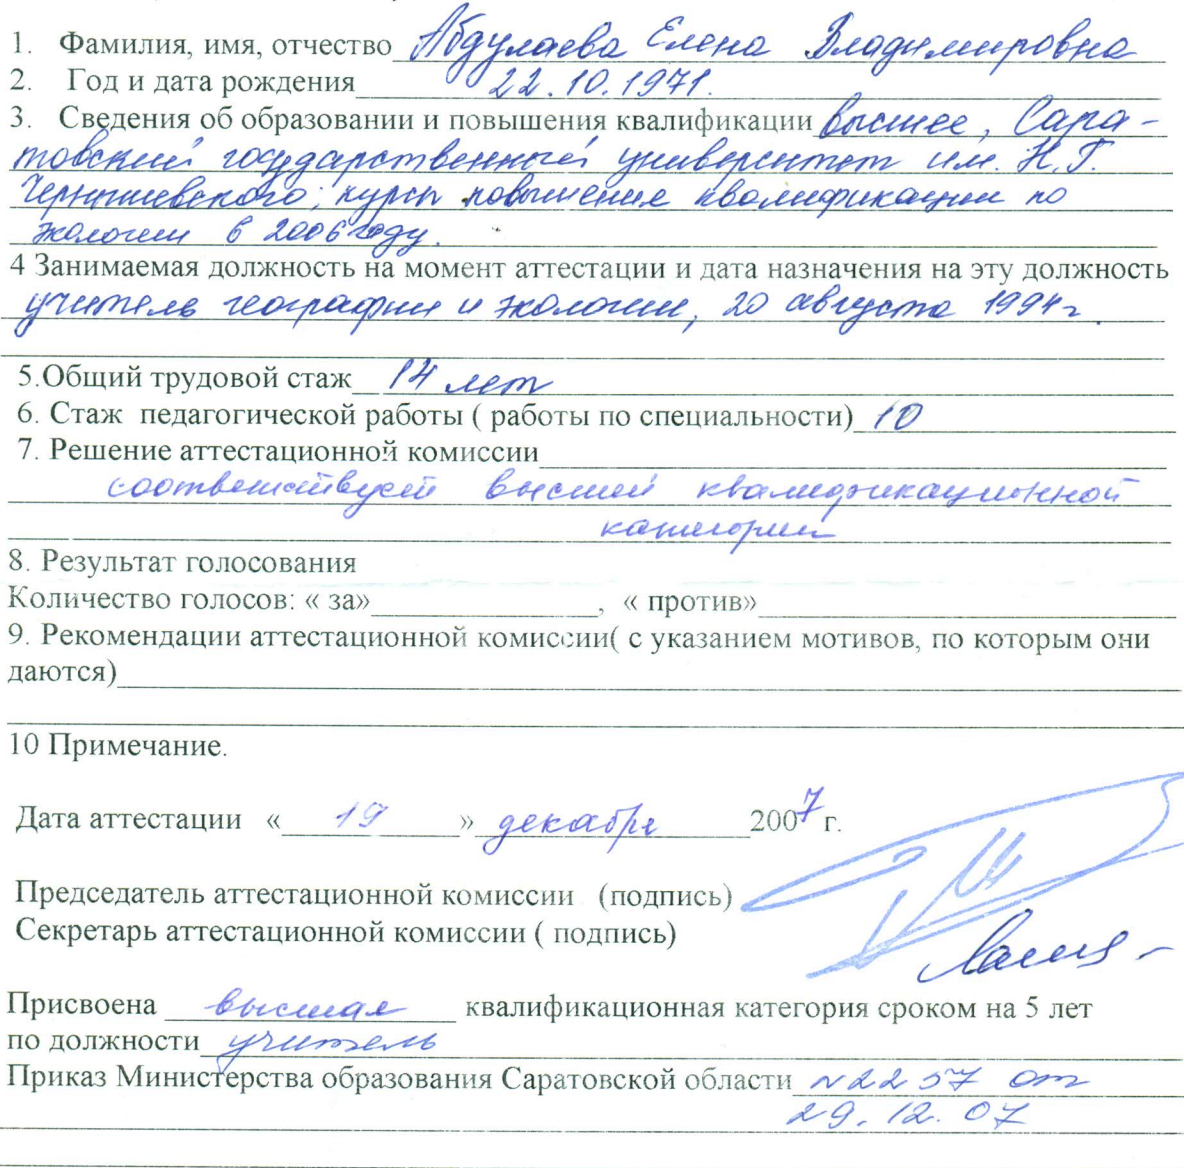 1. Фамилия, имя, отчество Абдулаева Елена Владимировна
2. Год и дата рождения 22.10.1971.
3. Сведения об образовании и повышения квалификации высшее, Сара-
товский государственный университет им. Н.Г.
Чернышевского; курсы повышение квалификации по
экологии в 2006 году.
4 Занимаемая должность на момент аттестации и дата назначения на эту должность
учитель географии и экологии, 20 августа 1994г.
5.Общий трудовой стаж 14 лет
6. Стаж педагогической работы ( работы по специальности) 10
7. Решение аттестационной комиссии
соответствует высшей квалификационной
категории
8. Результат голосования
Количество голосов: « за» , « против»
9. Рекомендации аттестационной комиссии( с указанием мотивов, по которым они
даются)
10 Примечание.
Дата аттестации « 19 » декабря 2007 г.
Председатель аттестационной комиссии (подпись)
Секретарь аттестационной комиссии ( подпись)
Присвоена высшая квалификационная категория сроком на 5 лет
по должности учитель
Приказ Министерства образования Саратовской области N2257 от
29.12.07